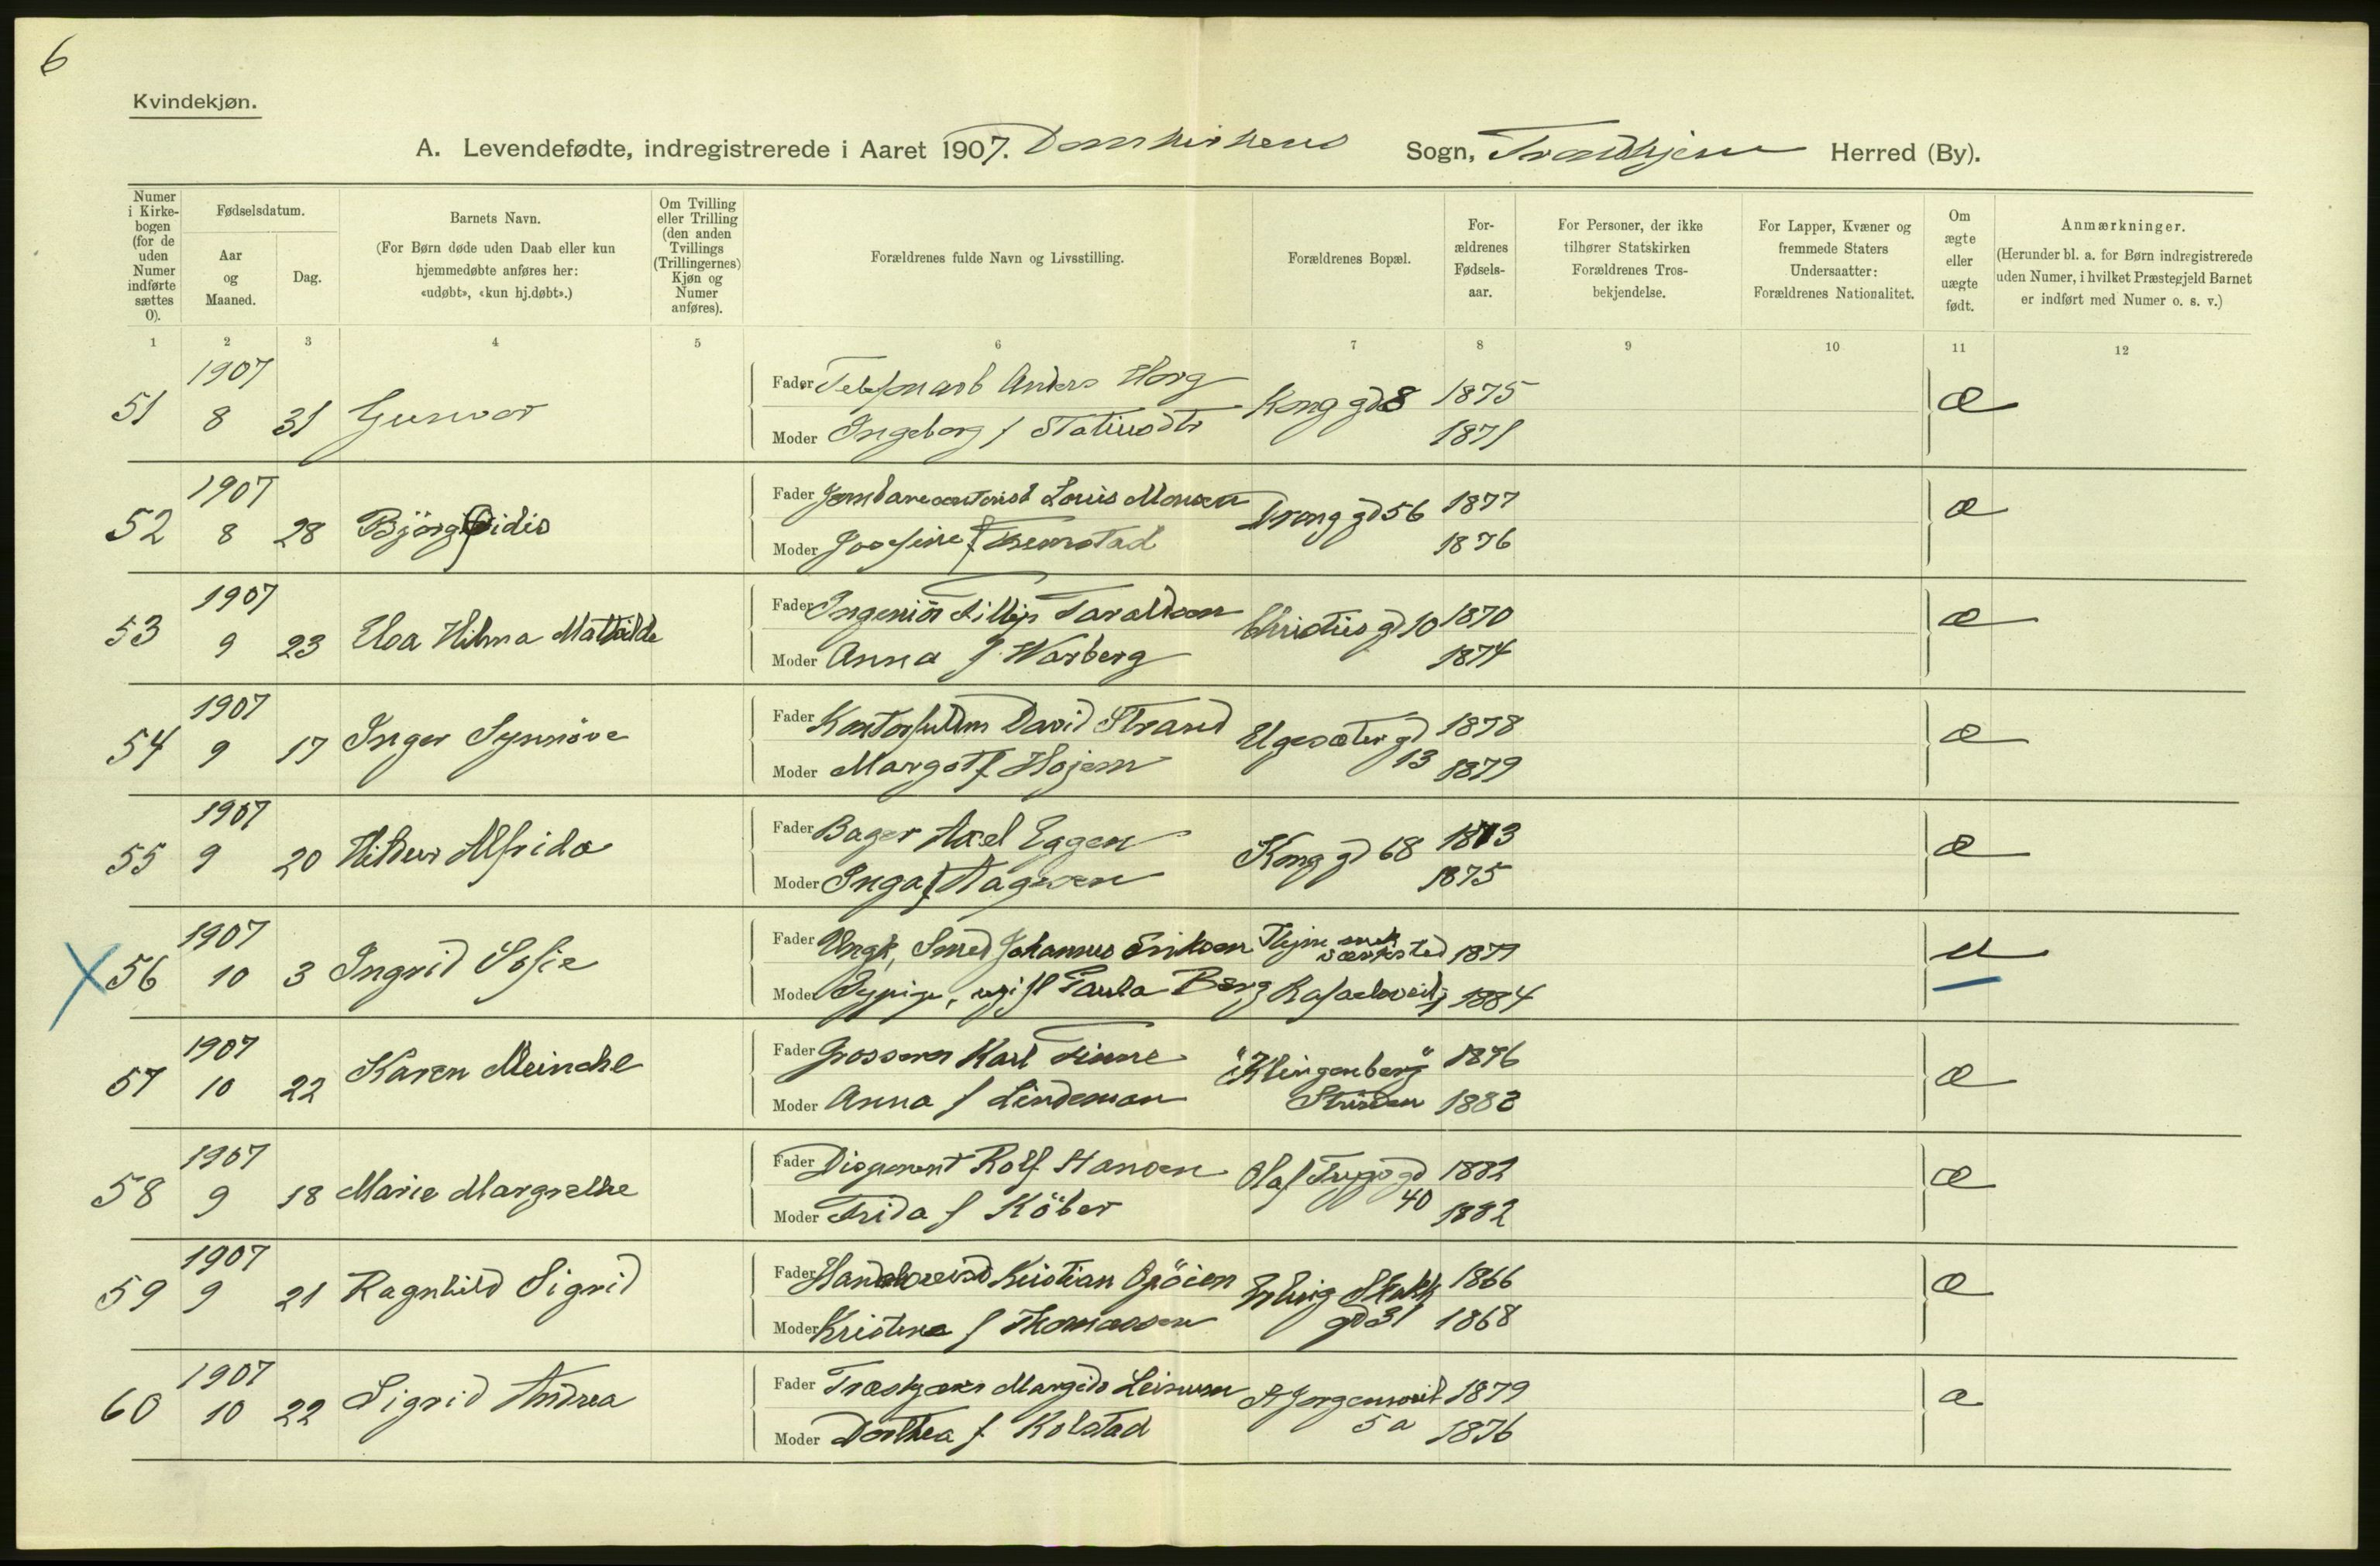 6
Kvindekjøn.
A. Levendefødte, indregistrerede i Aaret 1907. Domkirkens Sogn, Trondhjem Herred (By).
Numer i Kirkebogen (for de uden Numer indførte sættes 0).
Fødselsdatum.
Aar og Maaned.
Dag.
Barnets Navn.
(For Børn døde uden Daab eller kun hjemmedøbte anføres her: «udøbt», «kun hj.døbt».)
Om Tvilling eller Trilling (den anden Tvillings (Trillingernes) Kjøn og Numer anføres).
Forældrenes fulde Navn og Livsstilling.
Forældrenes Bopæl.
Forældrenes Fødselsaar.
For Personer, der ikke tilhører Statskirken Forældrenes Trosbekjendelse.
For Lapper, Kvæner og fremmede Staters Undersaatter: Forældrenes Nationalitet.
Om ægte eller uægte født.
Anmærkninger.
(Herunder bl. a. for Børn indregistrerede uden Numer, i hvilket Præstegjeld Barnet er indført med Numer o. s. v.)
1 2 3 4 5 6 7 8 9 10 11 12
1907
51 8 31 Gunvor
Fader Telefonarb Anders Horg Kong gd 8 1875 æ
Moder Ingeborg f Statinsdtr 1871
1907
52 8 28 Björg
Fader Louis Monsen Drong gd 56 1877 æ
Moder Josefine f 1876
1907
53 9 23 Elsa Hilma Mathilde
Fader Ingeniör Fillip Taraldsen Christies gd 10 1870 æ
Moder Anna f Warberg 1874
1907
54 9 17 Inger Synnöve
Fader Kontorfuldm David Strand Elgesæter gd 1878 æ
Moder Margot f Hojem 13 1879
1907
55 9 20 Hildur Alfrida
Fader Bager Axel Eggen Kong gd 68 1873 æ
Moder Inga f Aagesen 1875
1907
X 56 10 3 Ingrid Sofie
Fader Ungk, Smed Johannes Eriksen Thjm mek værksted 1877 u
Moder ugift Paula Berg Rafaelsveit 1884
1907
57 10 22 Karen Meincke
Fader Grosserer Karl Finne "Klingenberg" 1876 æ
Moder Anna f Lindeman Strinden 1883
1907
58 9 18 Marie Margrethe
Fader Disponent Rolf Hansen Olaf Trygg gd 1882 æ
Moder Frida f Köber 40 1882
1907
59 9 21 Ragnhild Sigrid
Fader Kristian Opöien Erling Skakk 1866 æ
Moder Kristine f Thomassen gd 31 1868
1907
60 10 22 Sigrid Andrea
Fader Margido Leinum St Jørgensveit 1879 æ
Moder Dorthea f Kolstad 5 a 1876